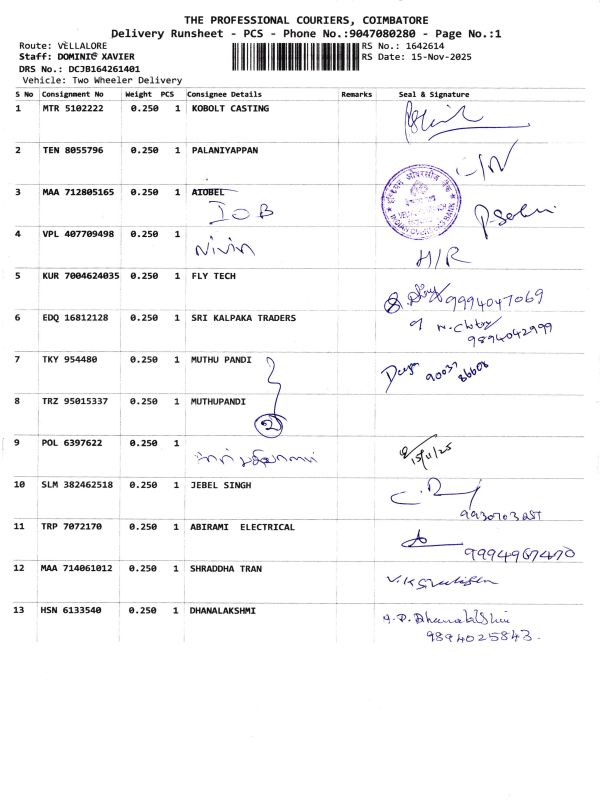 THE PROFESSIONAL COURIERS, COIMBATORE
Delivery Runsheet - PCS - Phone No.:9047080280 - Page No.:1
Route: VELLALORE RS No.: 1642614
Staff: DOMINIC XAVIER RS Date: 15-Nov-2025
DRS No.: DCJB164261401
Vehicle: Two Wheeler Delivery
S No Consignment No Weight PCS Consignee Details Remarks Seal & Signature
1 MTR 5102222 0.250 1 KOBOLT CASTING
2 TEN 8055796 0.250 1 PALANIYAPPAN
3 MAA 712805165 0.250 1 AIOBEL
IOB
4 VPL 407709498 0.250 1
Nivin H/R
5 KUR 7004624035 0.250 1 FLY TECH
9994047069
6 EDQ 16812128 0.250 1 SRI KALPAKA TRADERS
9894042999
7 TKY 954480 0.250 1 MUTHU PANDI
90037
86608
8 TRZ 95015337 0.250 1 MUTHUPANDI
2
9 POL 6397622 0.250 1
15/11/25
10 SLM 382462518 0.250 1 JEBEL SINGH
11 TRP 7072170 0.250 1 ABIRAMI ELECTRICAL
9994967470
12 MAA 714061012 0.250 1 SHRADDHA TRAN
13 HSN 6133540 0.250 1 DHANALAKSHMI
9894025843.